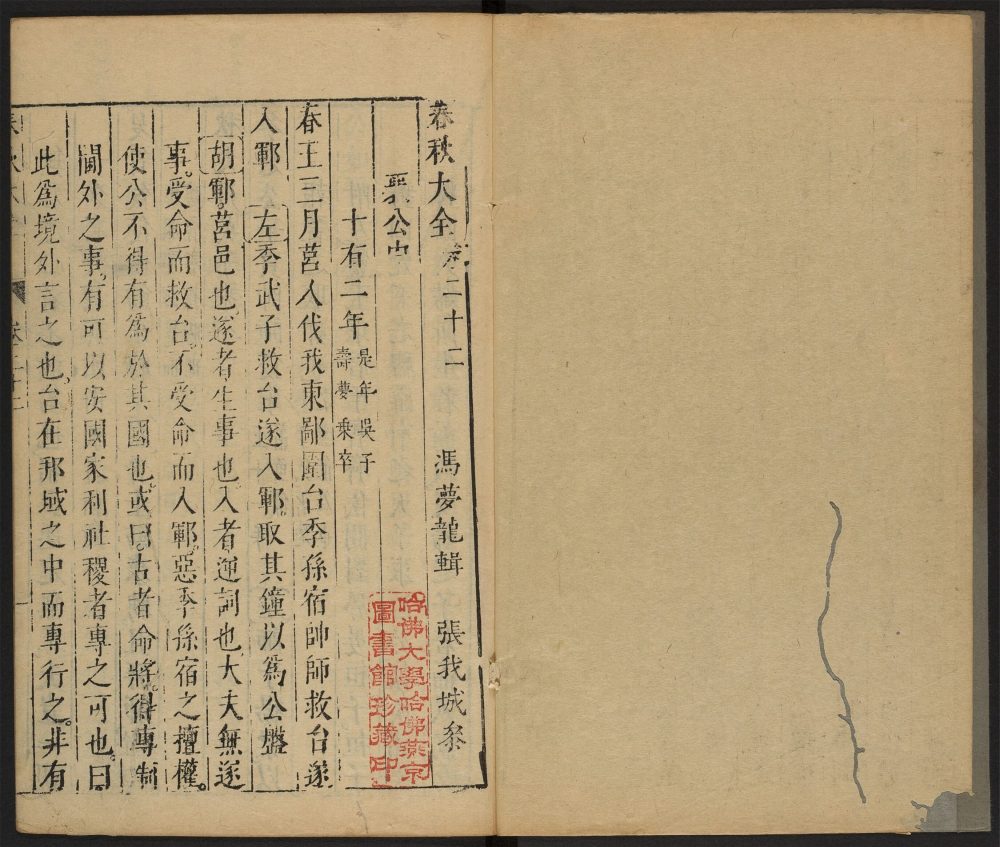 春秋大全卷二十二 馮夢龍輯 張我城參
襄公中
十有二年 是年吳子壽夢乘卒
春王三月莒人伐我東鄙圍台季孫宿帥師救台遂
入鄆 左季武子救台遂入鄆取其鐘以爲公盤
胡鄆莒邑也遂者生事也入者逆詞也大夫無遂
事。受命而救台。不受命而入鄆。惡季孫宿之擅權。
使公不得有爲於其國也。或曰。古者命將。得專制
閫外之事。有可以安國家利社稷者專之可也。曰。
此爲境外言之也。台在邦域之中而專行之。非有
卷二十二
一
哈佛大學哈佛燕京
圖書館珍藏印